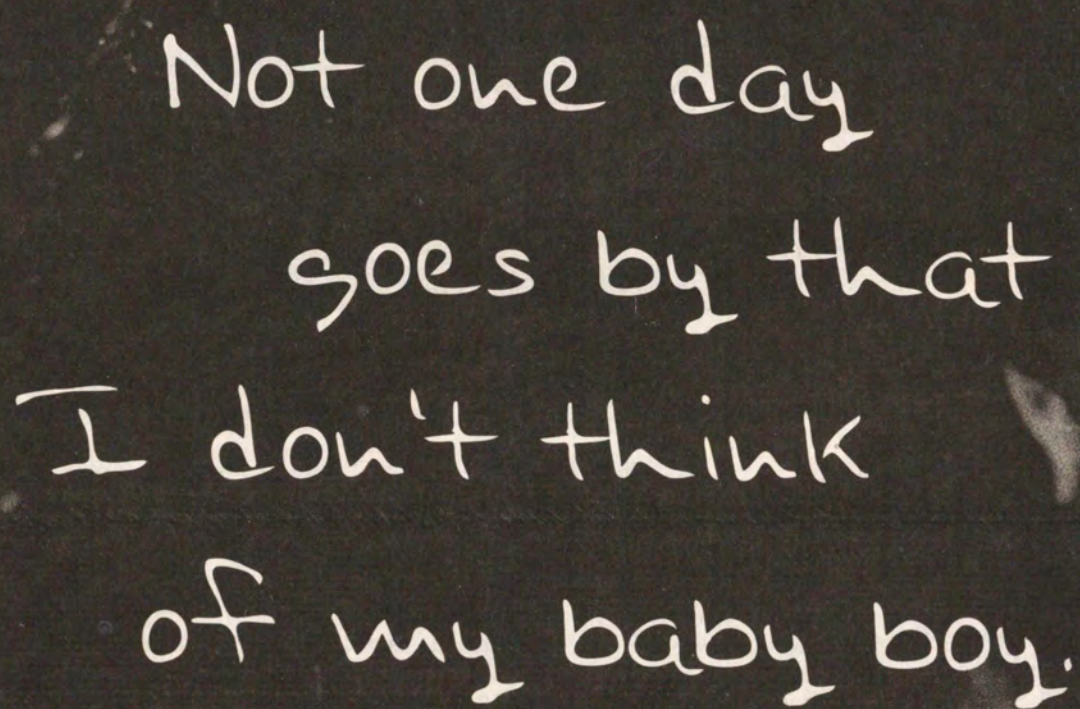 Not one day
goes by that
I don't think
of my baby boy.